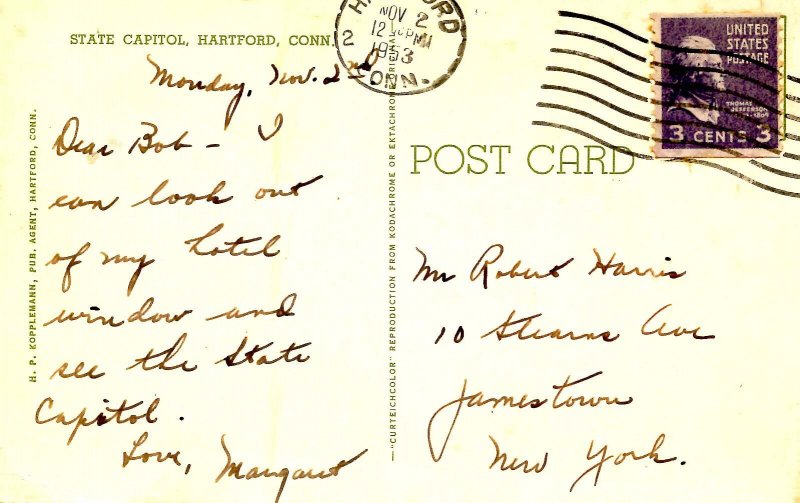 STATE CAPITOL, HARTFORD, CONN.
Monday, Nov. 2nd
Dear Bob - I
can look out
of my hotel
window and
see the State
Capitol.
Love, Margaret
H. P. KOPPLEMANN, PUB. AGENT, HARTFORD, CONN.
—"CURTEICHCOLOR" REPRODUCTION FROM KODACHROME OR EKTACHROME
NOV 2
12 PM
1953
2
CONN.
UNITED
STATES
POSTAGE
THOMAS
JEFFERSON
3 CENTS 3
POST CARD
Mr Robert Harris
10 Stearns Ave
Jamestown
New York.